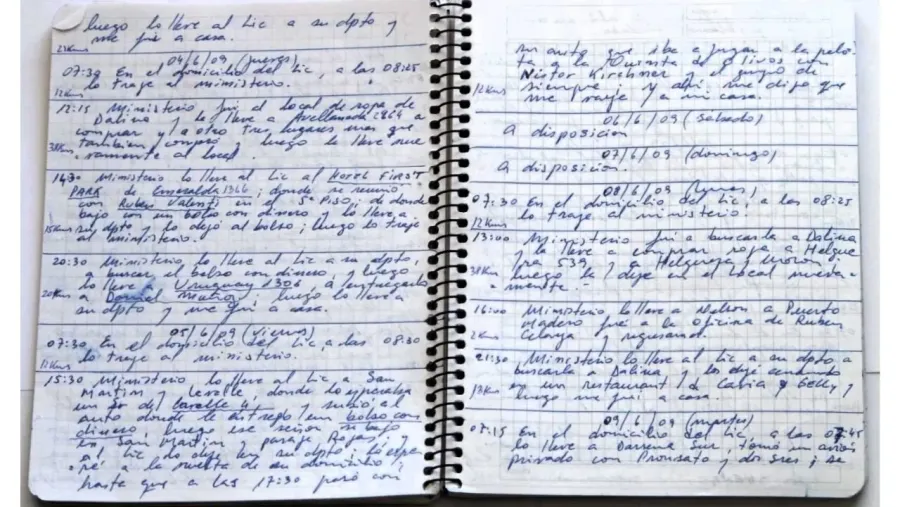 luego lo lleve al Lic a su dpto y
me fui a casa.
21Kms
04/6/09 (jueves)
07:30 En el domicilio del Lic, a las 08:25
lo traje al ministerio.
12Kms
12:15 Ministerio, fui al local de ropa de
Dalina y la lleve a Avellaneda 2864 a
comprar y a otro tres lugares mas que
tambien compró y luego la lleve nue
vamente al local.
38Kms
14:30 Ministerio lo lleve al Lic al HOTEL FIRST
PARK de Esmeralda 1366; donde se reunió
con Ruben Valenti en el 5º Piso; de donde
bajo con un bolso con dinero y lo lleve a
su dpto y lo dejó al bolso; luego lo traje
al ministerio.
15Kms
20:30 Ministerio lo lleve al Lic a su dpto,
a buscar el bolso con dinero, y luego
lo lleve a Uruguay 1306, a entregarlo
a Daniel Muñoz, luego lo lleve a
su dpto y me fui a casa.
20Kms
05/6/09 (viernes)
07:30 En el domicilio del Lic, a las 08:30
lo traje al ministerio.
11Kms
15:30 Ministerio lo lleve al Lic, a San
Martin y Lavalle, donde lo esperaba
un Sr de Lavalle y subió al
auto donde le entregó un bolso con
dinero, luego ese señor se bajo
en San Martin y pasaje Rojas, y
al Lic lo deje en su dpto; lo espe
ré a la vuelta de su domicilio;
hasta que a las 17:30 pasó con
su auto que iba a jugar a la pelo
ta a la Quinta de Olivos con
Nestor Kirchner y el grupo de
siempre; y alli me dijo que
me vaya a mi casa.
12Kms
06/6/09 (sabado)
A disposicion
07/6/09 (domingo)
A disposicion.
08/6/09 (lunes)
07:30 En el domicilio del Lic, a las 08:25
lo traje al ministerio.
12Kms
13:00 Ministerio fui a buscarla a Dalina
y la lleve a comprar ropa a Helgue
ra 539 y a Helguera y Moron.
luego la deje en el local nueva
mente.
38Kms
16:00 Ministerio lo lleve a Nelson a Puerto
Madero fui a la oficina de Ruben
y regresamos.
2Kms
21:30 Ministerio lo lleve al Lic a su dpto a
buscarla a Dalina y los deje cenando
en un restaurant de Cavia y Gelly y
luego me fui a casa.
13Kms
09/6/09 (martes)
07:15 En el domicilio del Lic, a las 07:45
lo lleve a Barrena Sur, tomó un avion
privado con Pronsato y dos sres; se